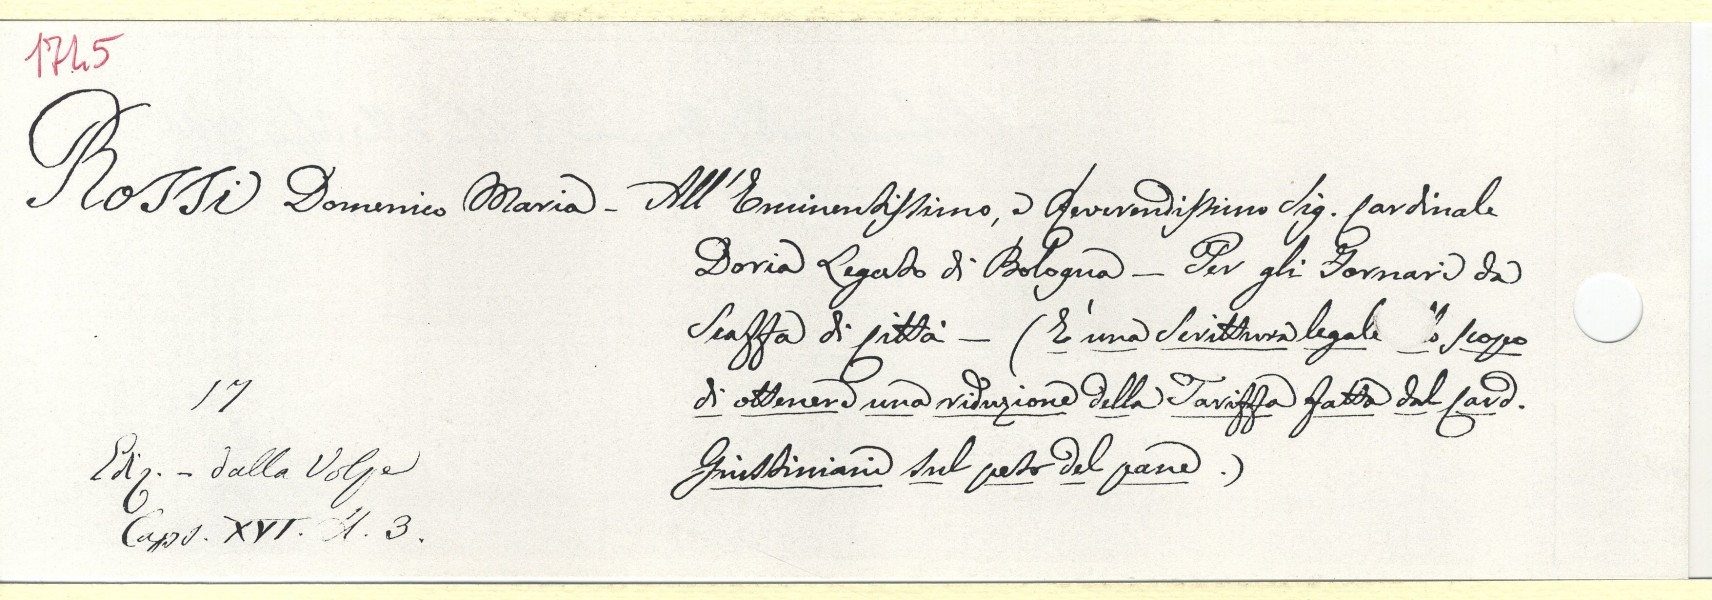 1745
Rossi Domenico Maria - All'Eminentissimo, e Reverendissimo Sig. Cardinale
Doria Legato di Bologna - Per gli Fornari da
Scaffa di Città - (È una Scrittura legale a scopo
di ottenere una riduzione della Tariffa fatta dal Card.
Giustiniani sul peso del pane.)
17
Ediz. - dalla Volpe
Caps. XVI. N. 3.